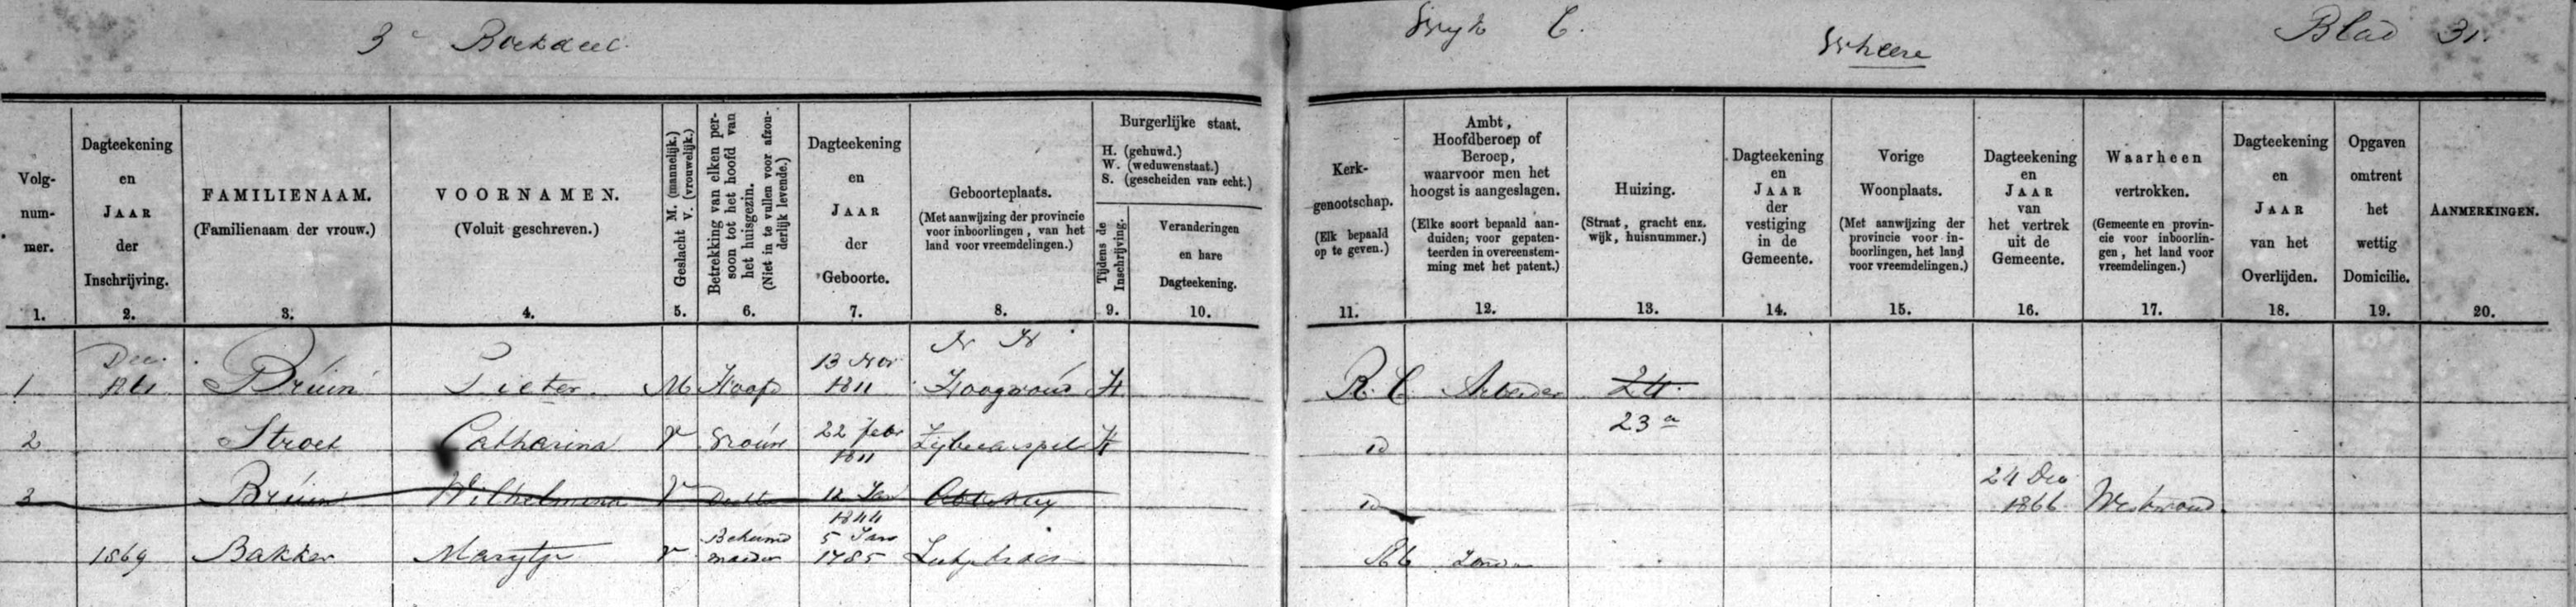 3e Boekdeel.
Wyk C.
Wheere
Blad 31.
Volg-
num-
mer.
1.
Dagteekening
en
JAAR
der
Inschrijving.
2.
FAMILIENAAM.
(Familienaam der vrouw.)
3.
VOORNAMEN.
(Voluit geschreven.)
4.
Geslacht M. (mannelijk.)
V. (vrouwelijk.)
5.
Betrekking van elken per-
soon tot het hoofd van
het huisgezin.
(Niet in te vullen voor afzon-
derlijk levende.)
6.
Dagteekening
en
JAAR
der
Geboorte.
7.
Geboorteplaats.
(Met aanwijzing der provincie
voor inboorlingen, van het
land voor vreemdelingen.)
8.
Burgerlijke staat.
H. (gehuwd.)
W. (weduwenstaat.)
S. (gescheiden van echt.)
Tijdens de
Inschrijving.
9.
Veranderingen
en hare
Dagteekening.
10.
Kerk-
genootschap.
(Elk bepaald
op te geven.)
11.
Ambt,
Hoofdberoep of
Beroep,
waarvoor men het
hoogst is aangeslagen.
(Elke soort bepaald aan-
duiden; voor gepaten-
teerden in overeenstem-
ming met het patent.)
12.
Huizing.
(Straat, gracht enz.
wijk, huisnummer.)
13.
Dagteekening
en
JAAR
der
vestiging
in de
Gemeente.
14.
Vorige
Woonplaats.
(Met aanwijzing der
provincie voor in-
boorlingen, het land
voor vreemdelingen.)
15.
Dagteekening
en
JAAR
van
het vertrek
uit de
Gemeente.
16.
Waarheen
vertrokken.
(Gemeente en provin-
cie voor inboorlin-
gen, het land voor
vreemdelingen.)
17.
Dagteekening
en
JAAR
van het
Overlijden.
18.
Opgaven
omtrent
het
wettig
Domicilie.
19.
AANMERKINGEN.
20.
Dec. 13 Nov N H
1 1861 Bruin Pieter M Hoofd 1811 Hoogwoud H R. C Arbeider 24
23 a
2 Stroet Catharina V Vrouw 22 febr 1811 Zybecarspel H id
3 Bruin Wilhelmina V Dochter 12 Jan 1844 Abbekerk id 24 Dec 1866 Westwoud
1869 Bakker Marytje V Behuwd moeder 5 Jan 1785 RC Zonder